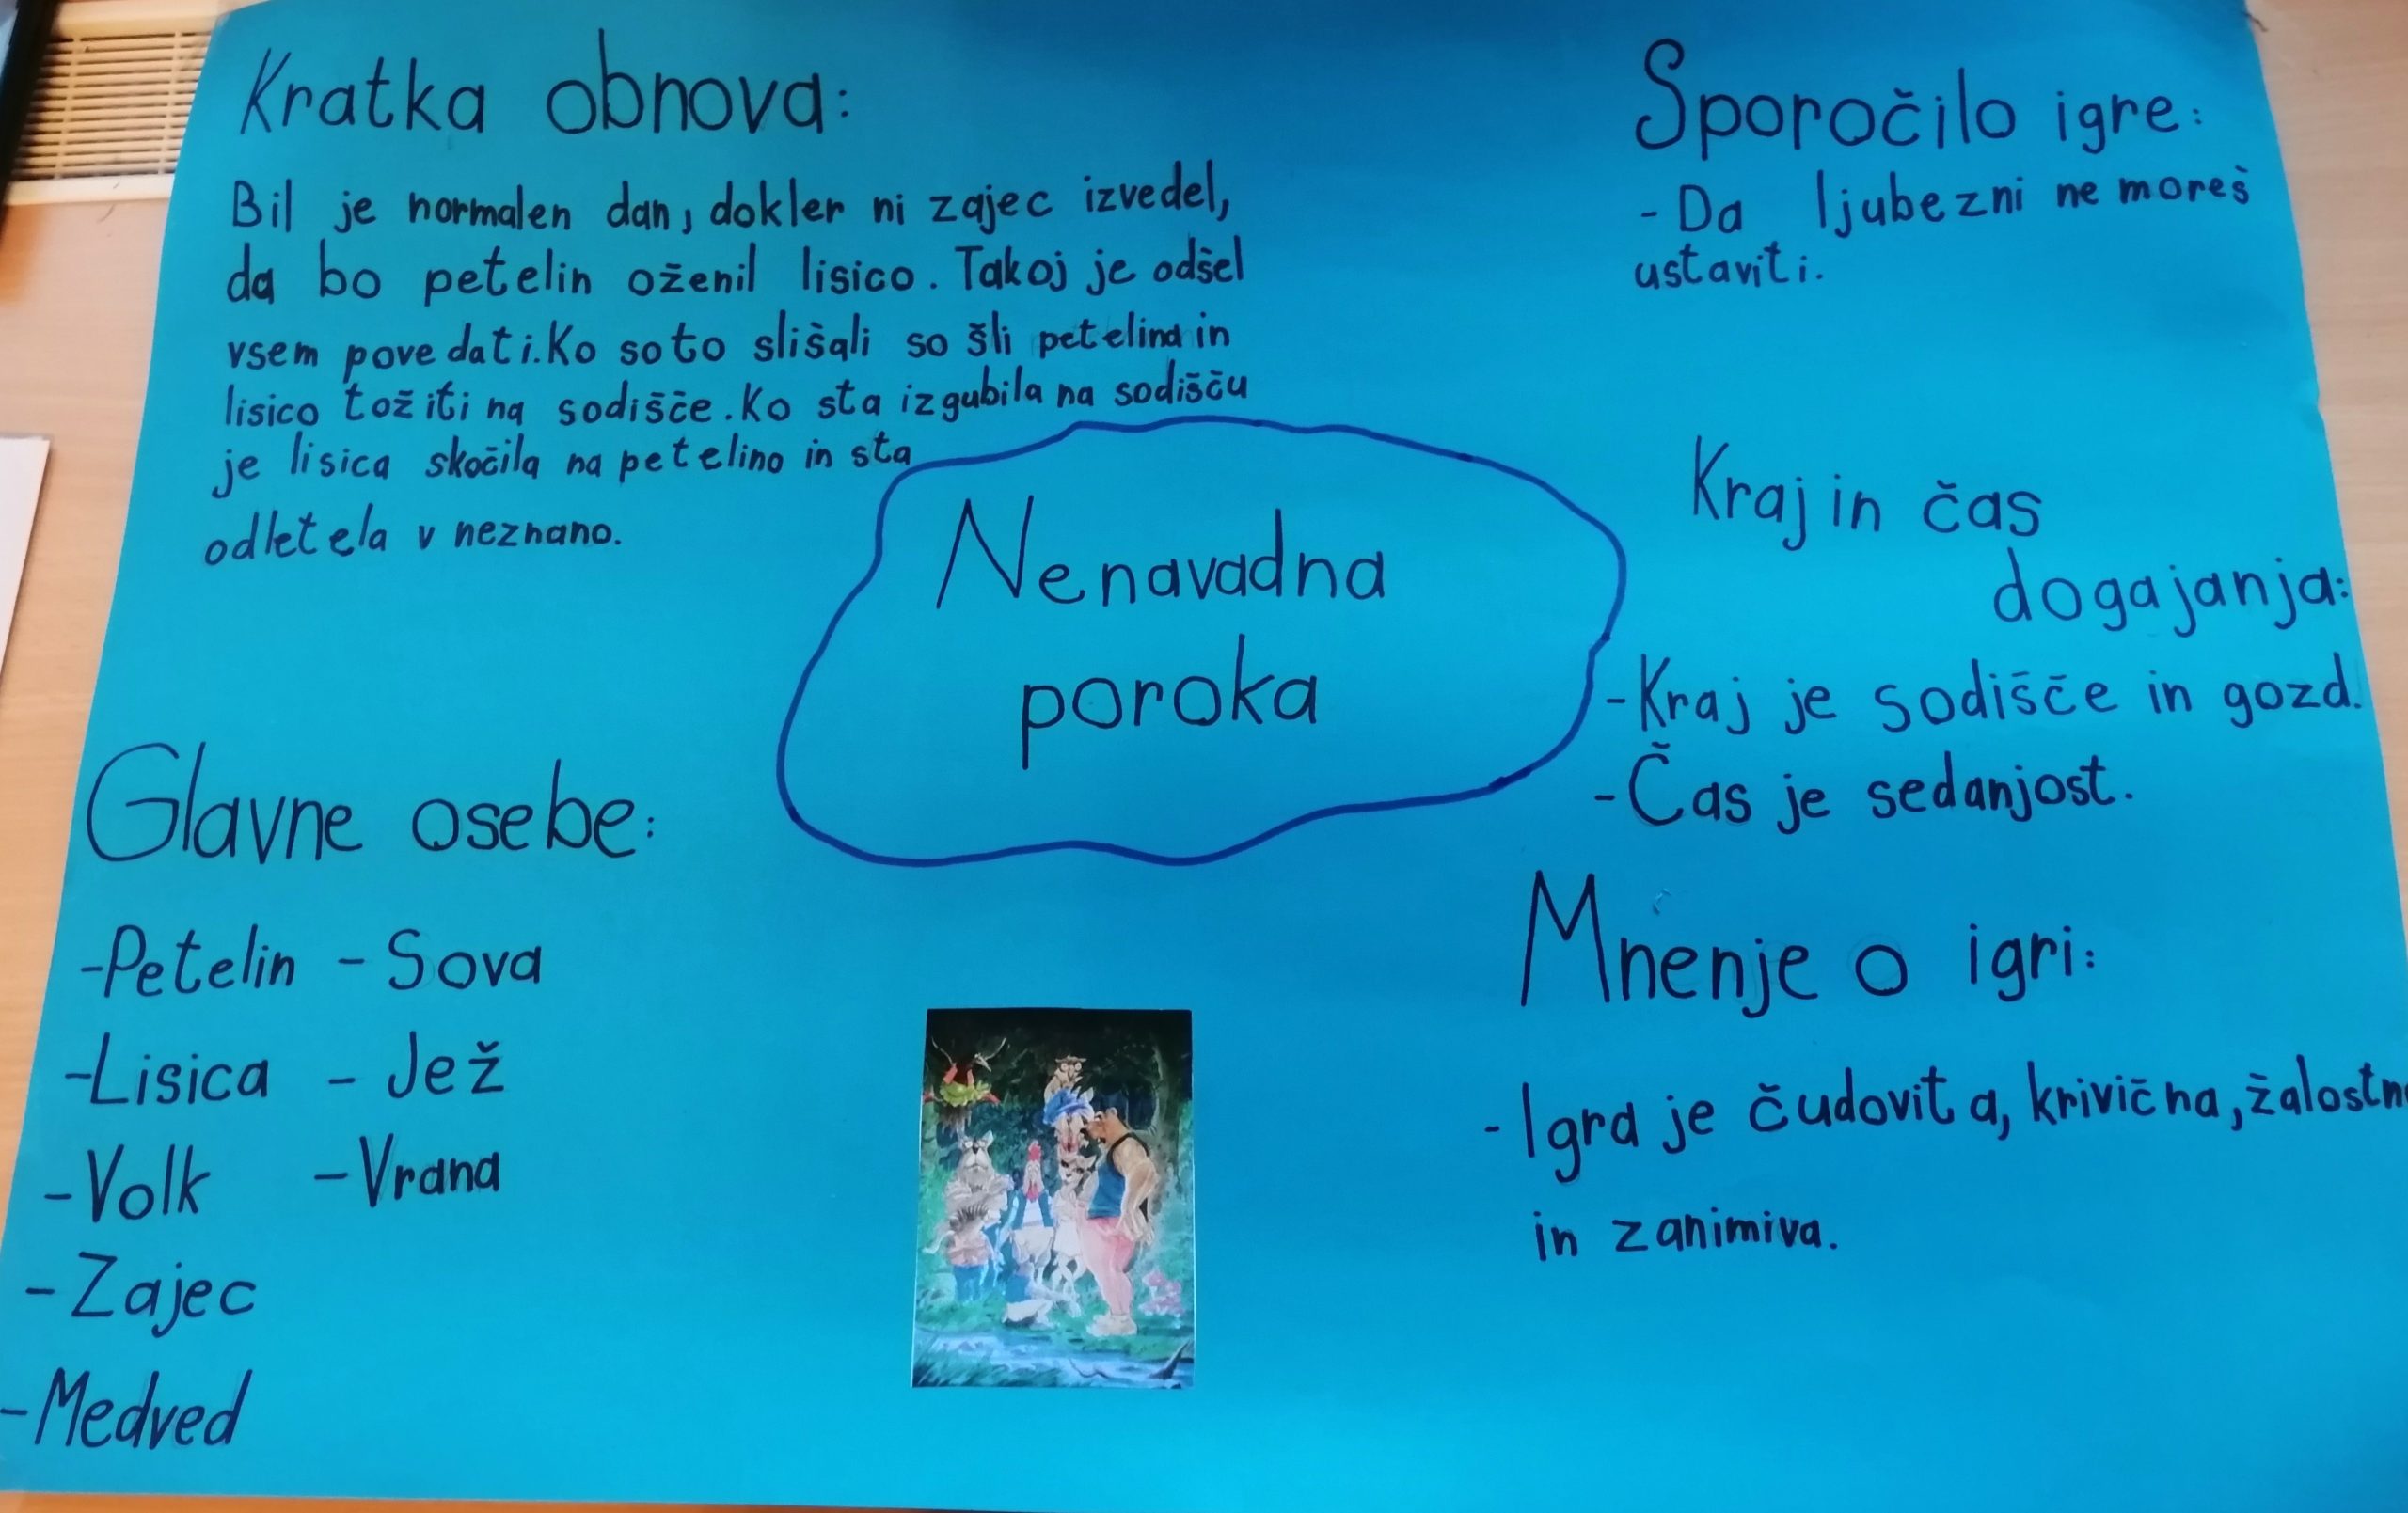 Kratka obnova:
Bil je normalen dan, dokler ni zajec izvedel,
da bo petelin oženil lisico. Takoj je odšel
vsem povedati. Ko so to slišali so šli petelina in
lisico tožiti na sodišče. Ko sta izgubila na sodišču
je lisica skočila na petelino in sta
odletela v neznano.
Nenavadna
poroka
Glavne osebe:
- Petelin - Sova
- Lisica - Jež
- Volk - Vrana
- Zajec
- Medved
Sporočilo igre:
- Da ljubezni ne moreš
ustaviti.
Kraj in čas
dogajanja:
- Kraj je sodišče in gozd.
- Čas je sedanjost.
Mnenje o igri:
- Igra je čudovita, krivična, žalostn
in zanimiva.